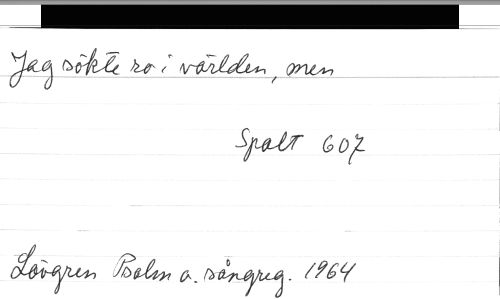 Jag sökte ro i världen, men
Spalt 607
Lövgren Psalm o. sångreg. 1964